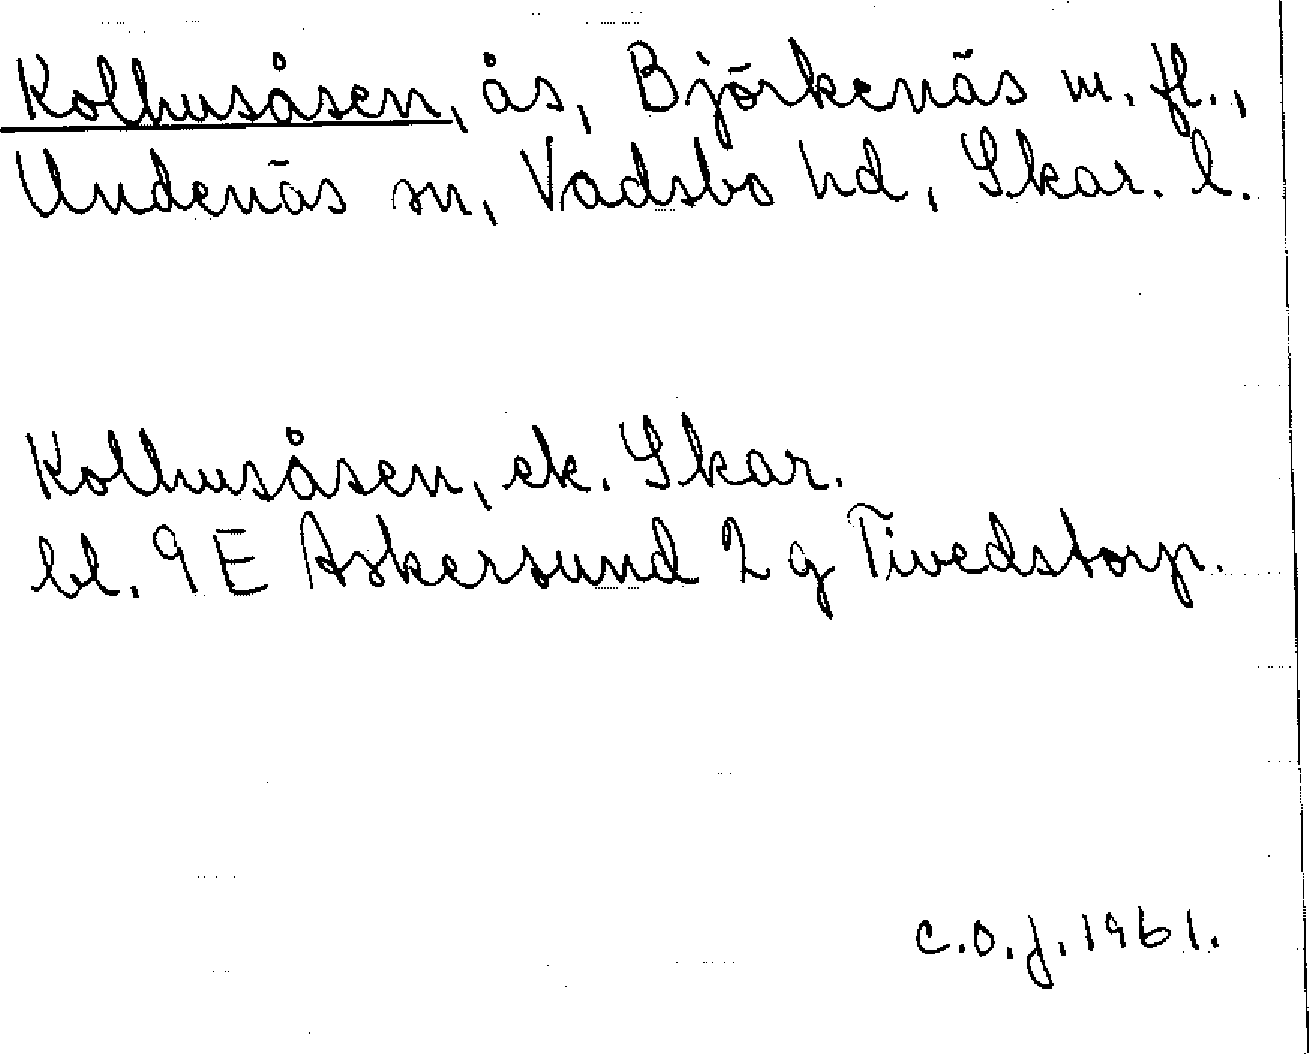 Kolhusåsen, ås, Björkenäs m. fl.,
Undenäs sn, Vadsbo hd, Skar. l.
Kolhusåsen, ek. Skar.
bl. 9 E Askersund 2 g Tivedstorp.
C.O.J. 1961.